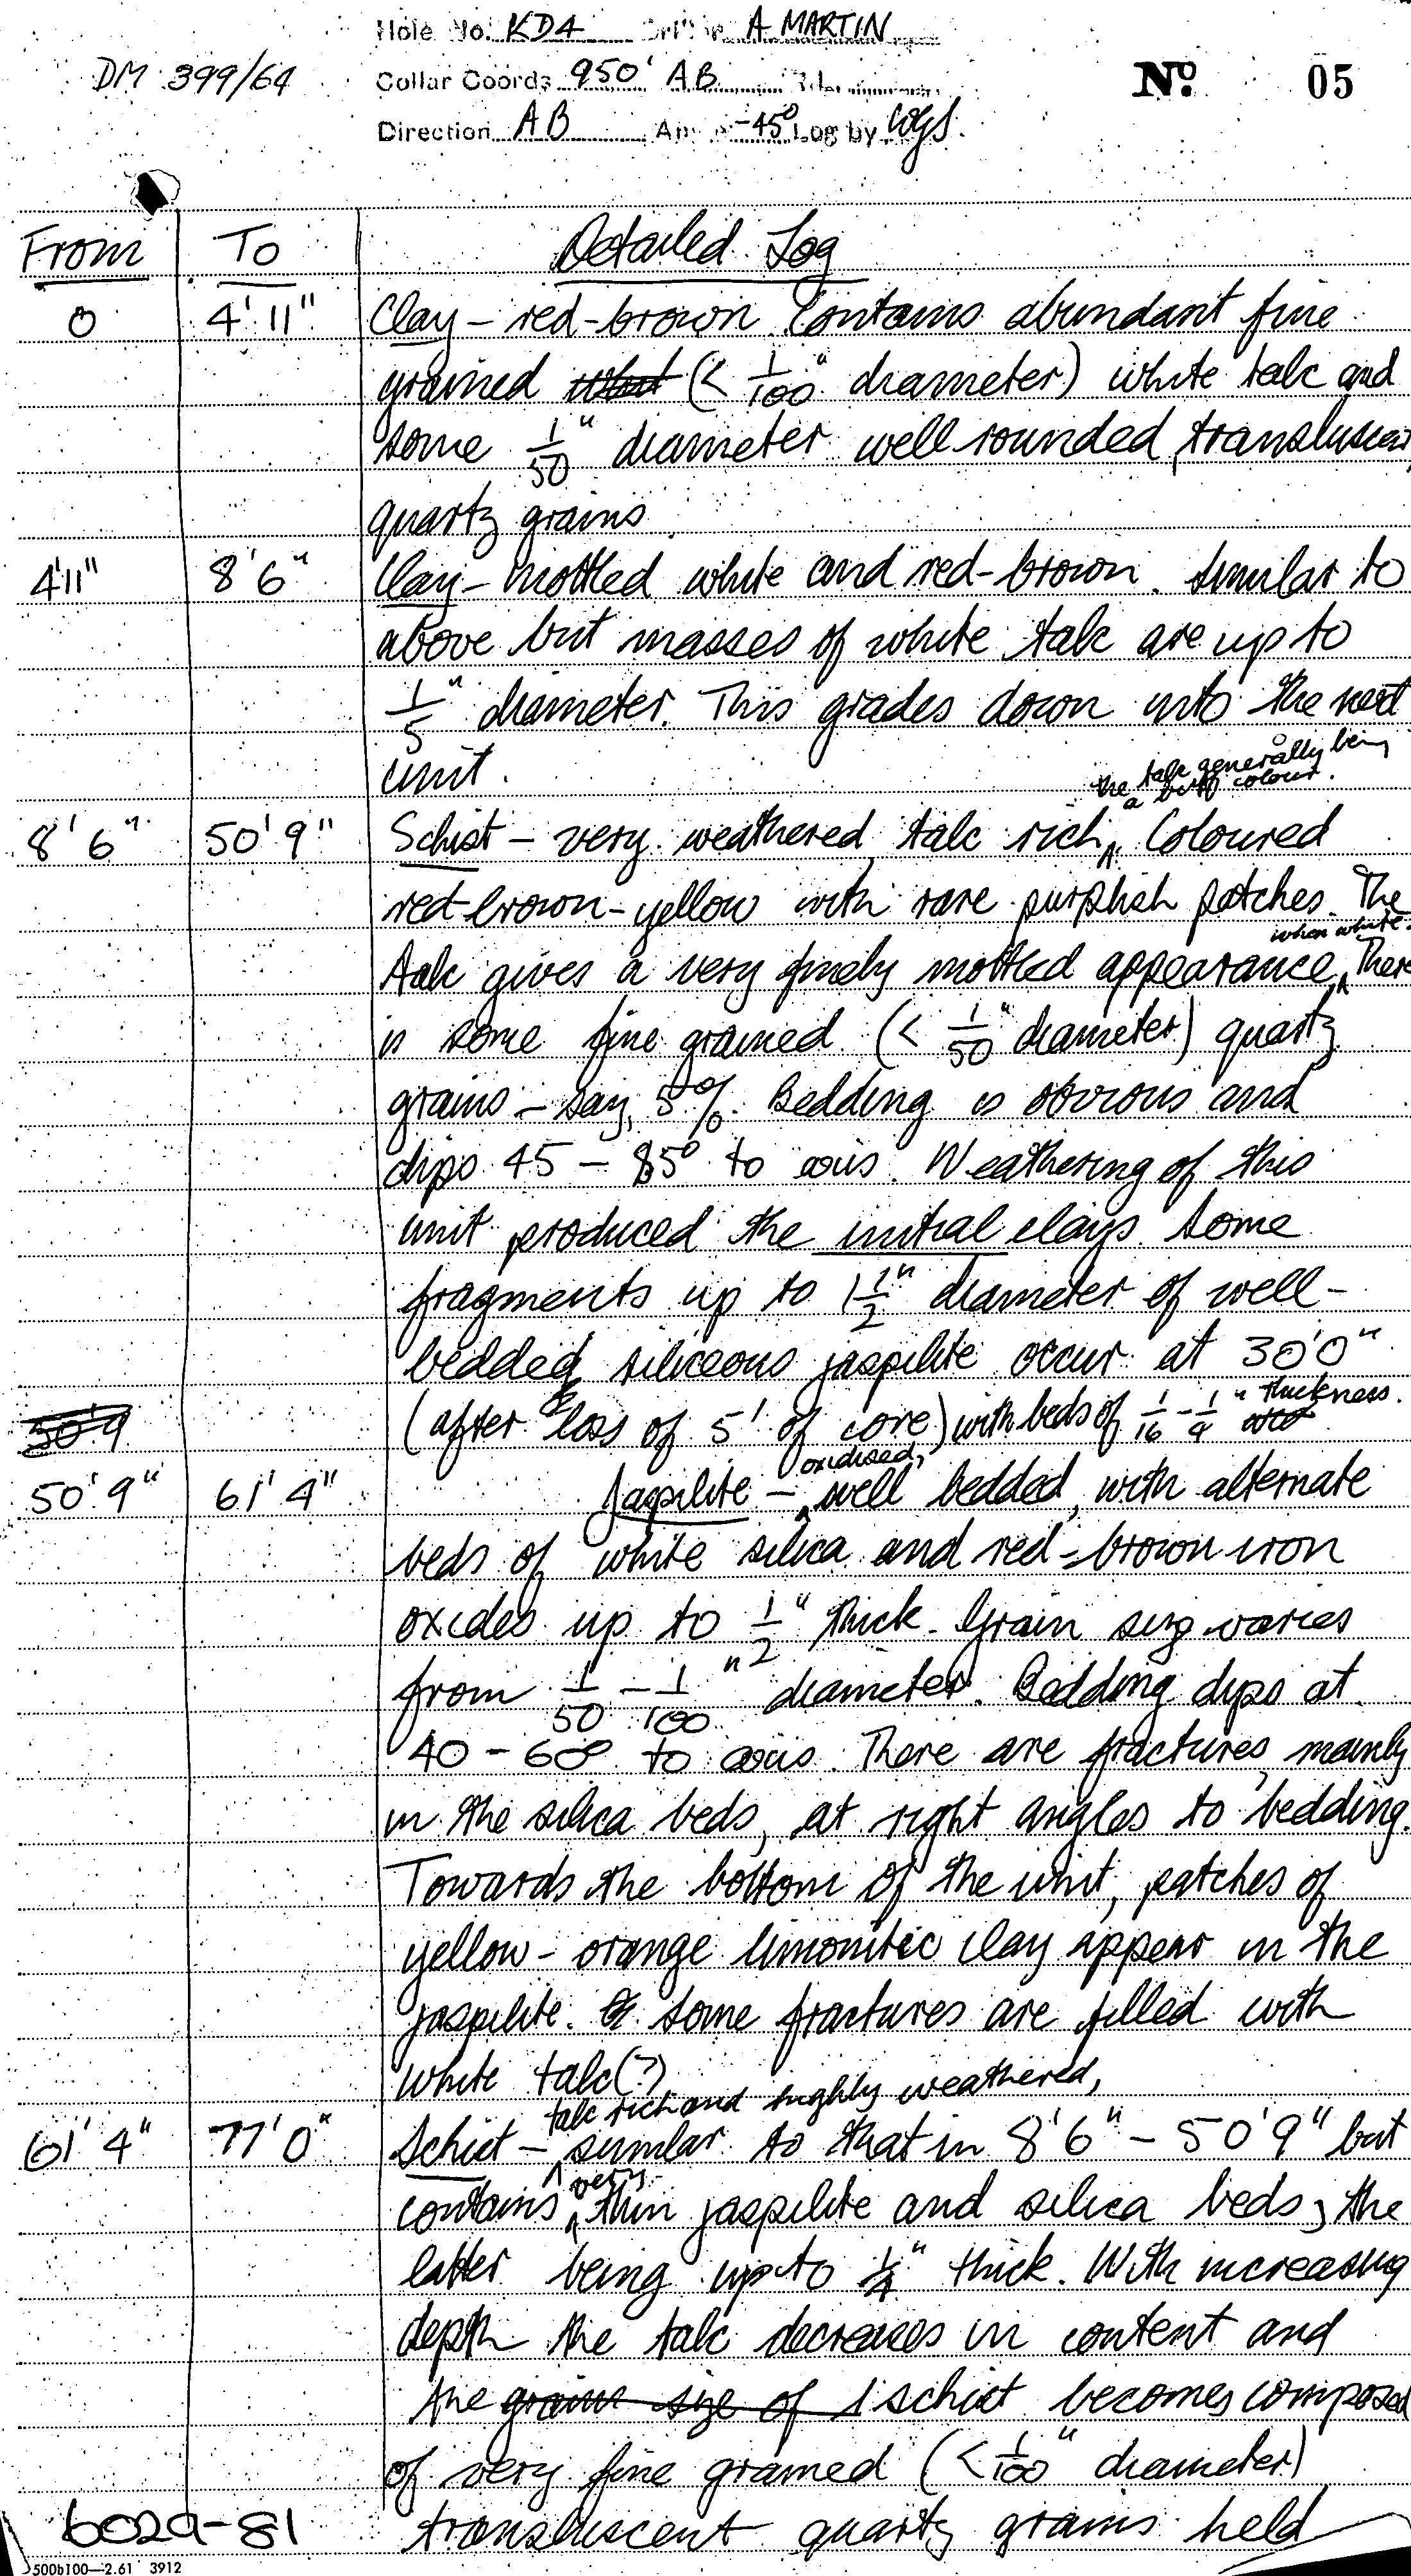 Hole No. KD4 A MARTIN
DM 399/64 Collar Coords 950' AB Nº 05
Direction AB -45° Log by WGS.
From To Detailed Log
0 4'11" Clay - red-brown. Contains abundant fine
grained (< 1/100" diameter) white talc and
some 1/50" diameter well rounded, transluscent
quartz grains
4'11" 8'6" Clay - mottled white and red-brown. Similar to
above but masses of white talc are up to
1/5" diameter. This grades down into the next
unit.
the talc generally being
a buff colour.
8'6" 50'9" Schist - very weathered, talc rich, Coloured
red-brown-yellow with rare purplish patches. The
when white.
talc gives a very finely mottled appearance There
is some fine grained (< 1/50" diameter) quartz
grains - say, 5%. Bedding is obvious and
dips 45 - 85° to axis. Weathering of this
unit produced the initial clays. Some
fragments up to 1 1/2" diameter of well-
bedded siliceous jaspilite occur at 30'0"
50'9 (after loss of 5' of core) with beds of 1/16 - 1/4" thickness.
oxidised,
50'9" 61'4" Jaspilite - well bedded, with alternate
beds of white silica and red-brown iron
oxides up to 1/2" thick. Grain size varies
from 1/50 - 1/100" diameter. Bedding dips at
40 - 60° to axis. There are fractures, mainly
in the silica beds, at right angles to bedding.
Towards the bottom of the unit, patches of
yellow-orange limonitic clay appear in the
jaspilite. Some fractures are filled with
white talc(?)
talc rich and highly weathered,
61'4" 77'0" Schist - similar to that in 8'6" - 50'9" but
very
contains thin jaspilite and silica beds, the
latter being up to 1/4" thick. With increasing
depth the talc decreases in content and
the grain size of schist becomes composed
of very fine grained (< 1/100" diameter)
transluscent quartz grains held
6029-81
500b100—2.61 3912